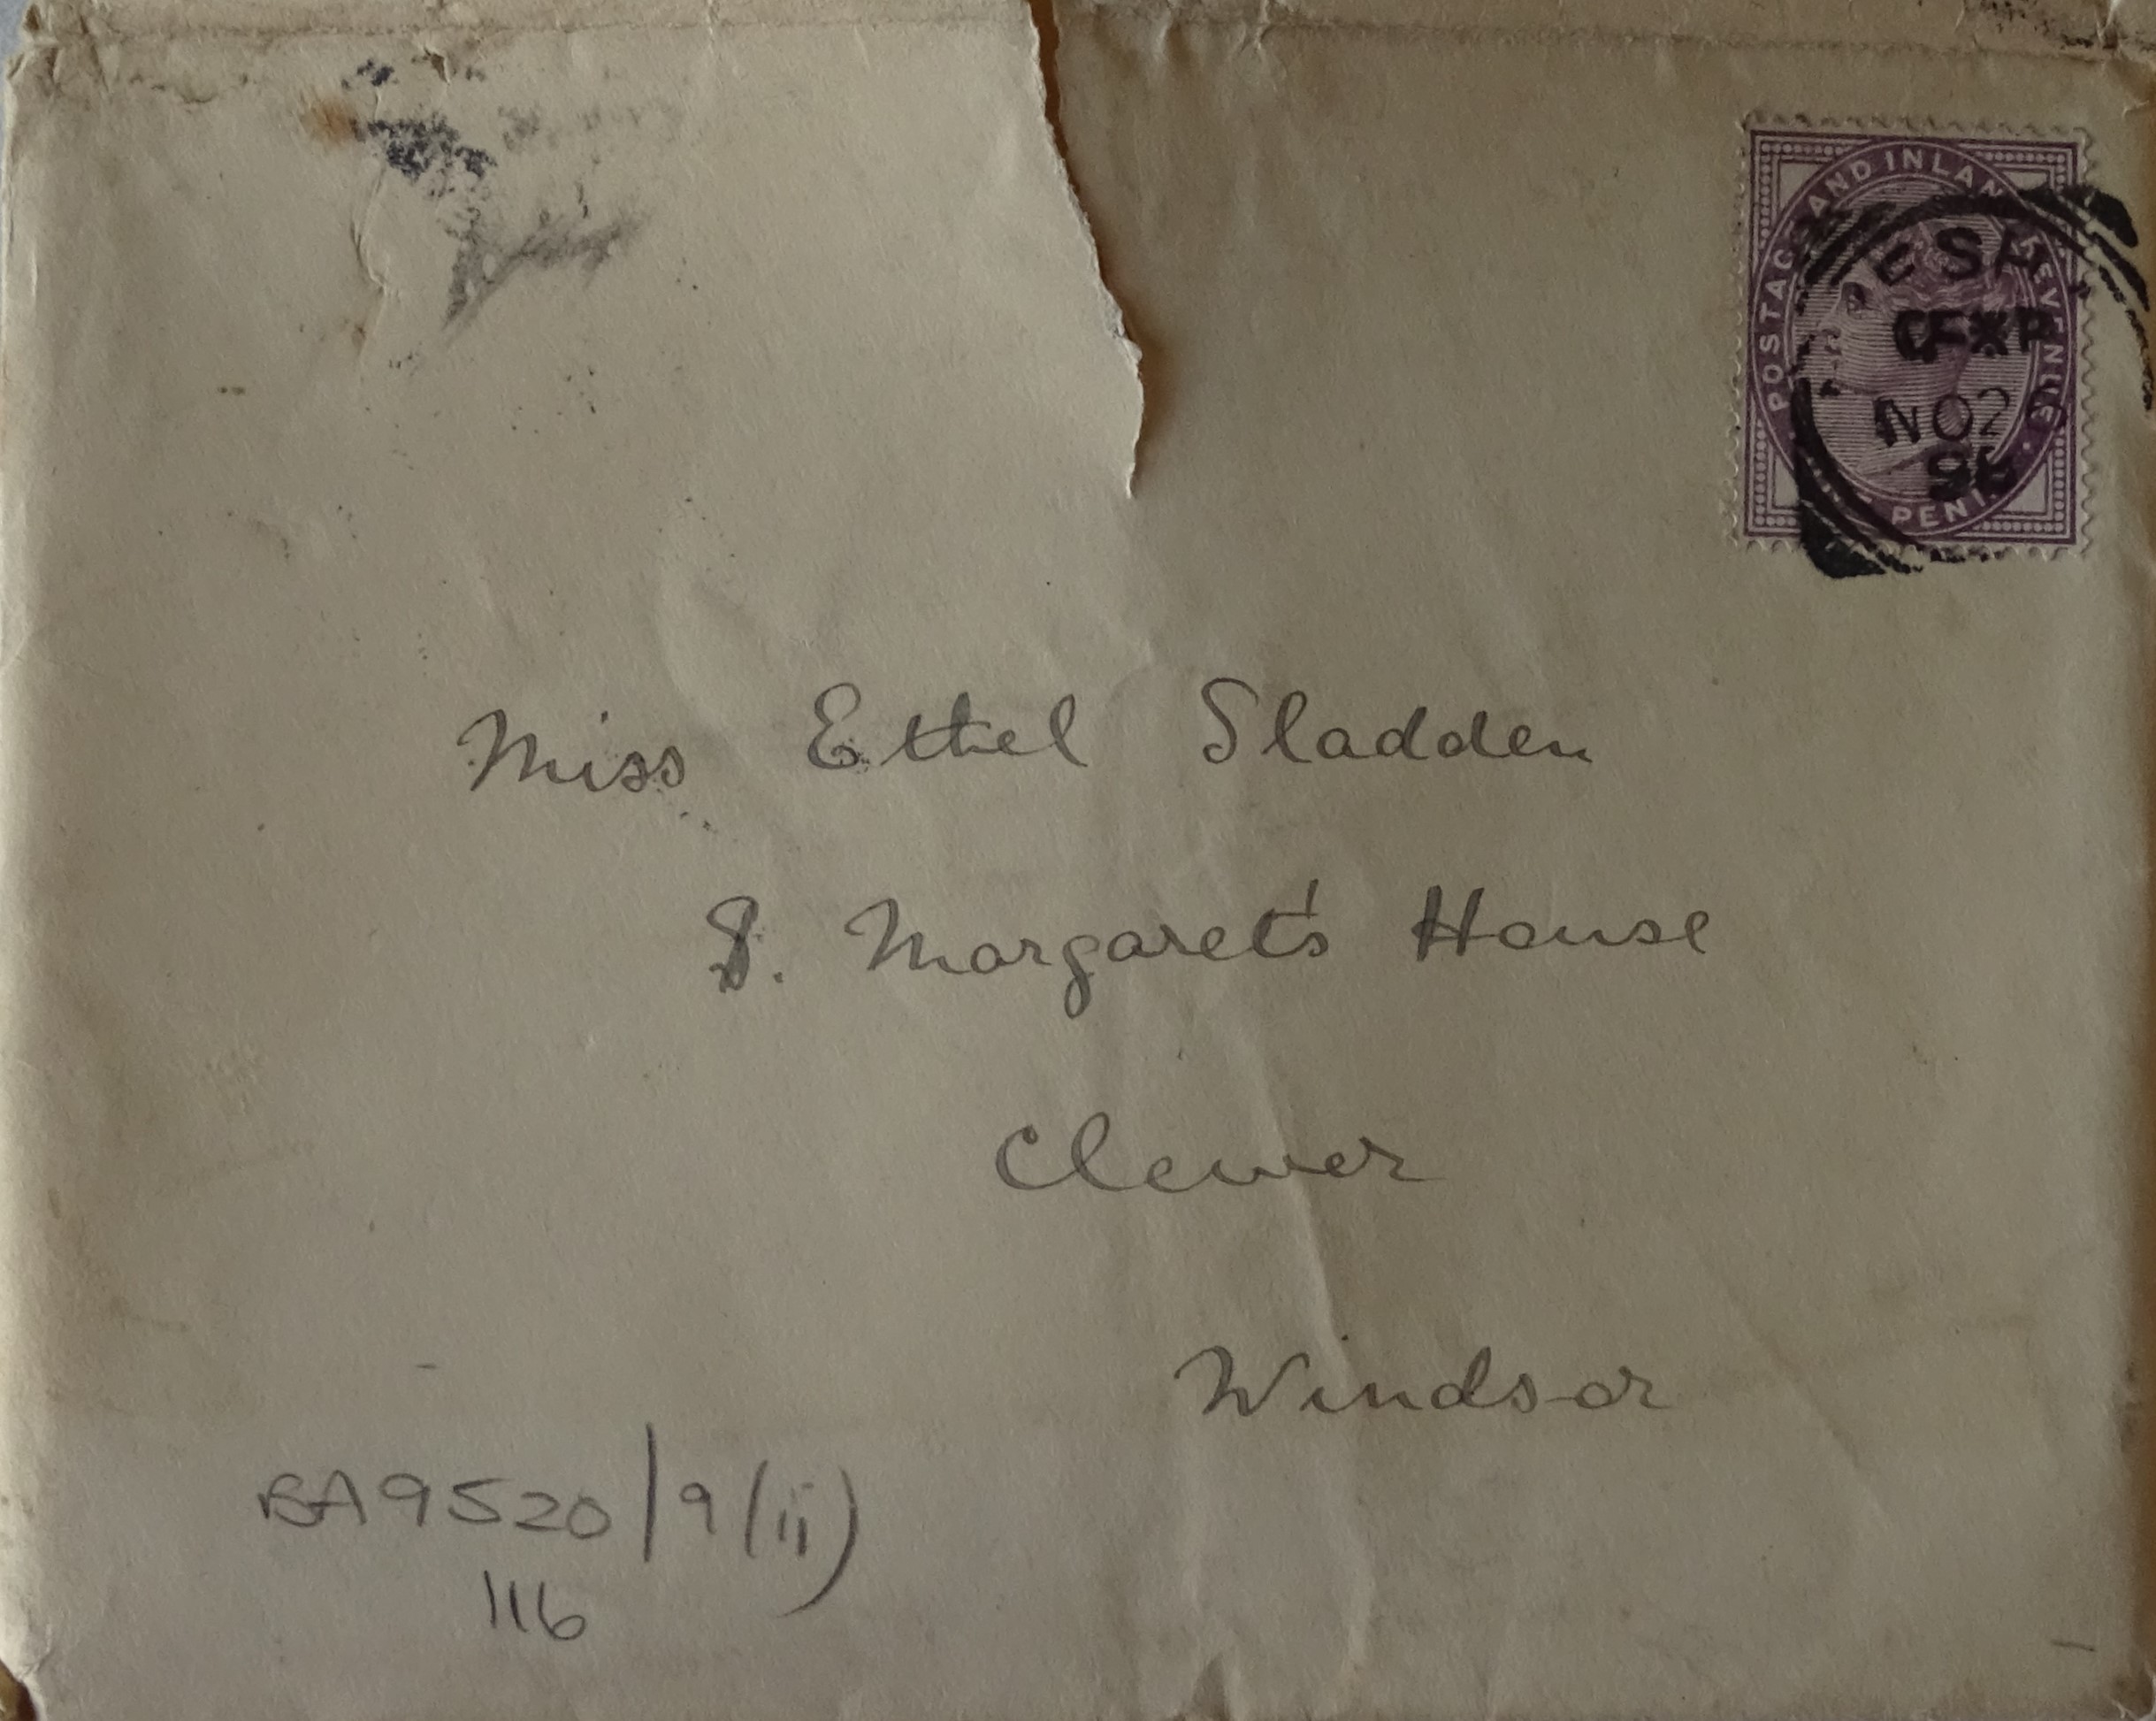 POSTAGE AND INLAND REVENUE
PENNY
NO 2
Miss Ethel Sladden
S. Margaret's House
Clewer
Windsor
BA9520/9(ii)
116